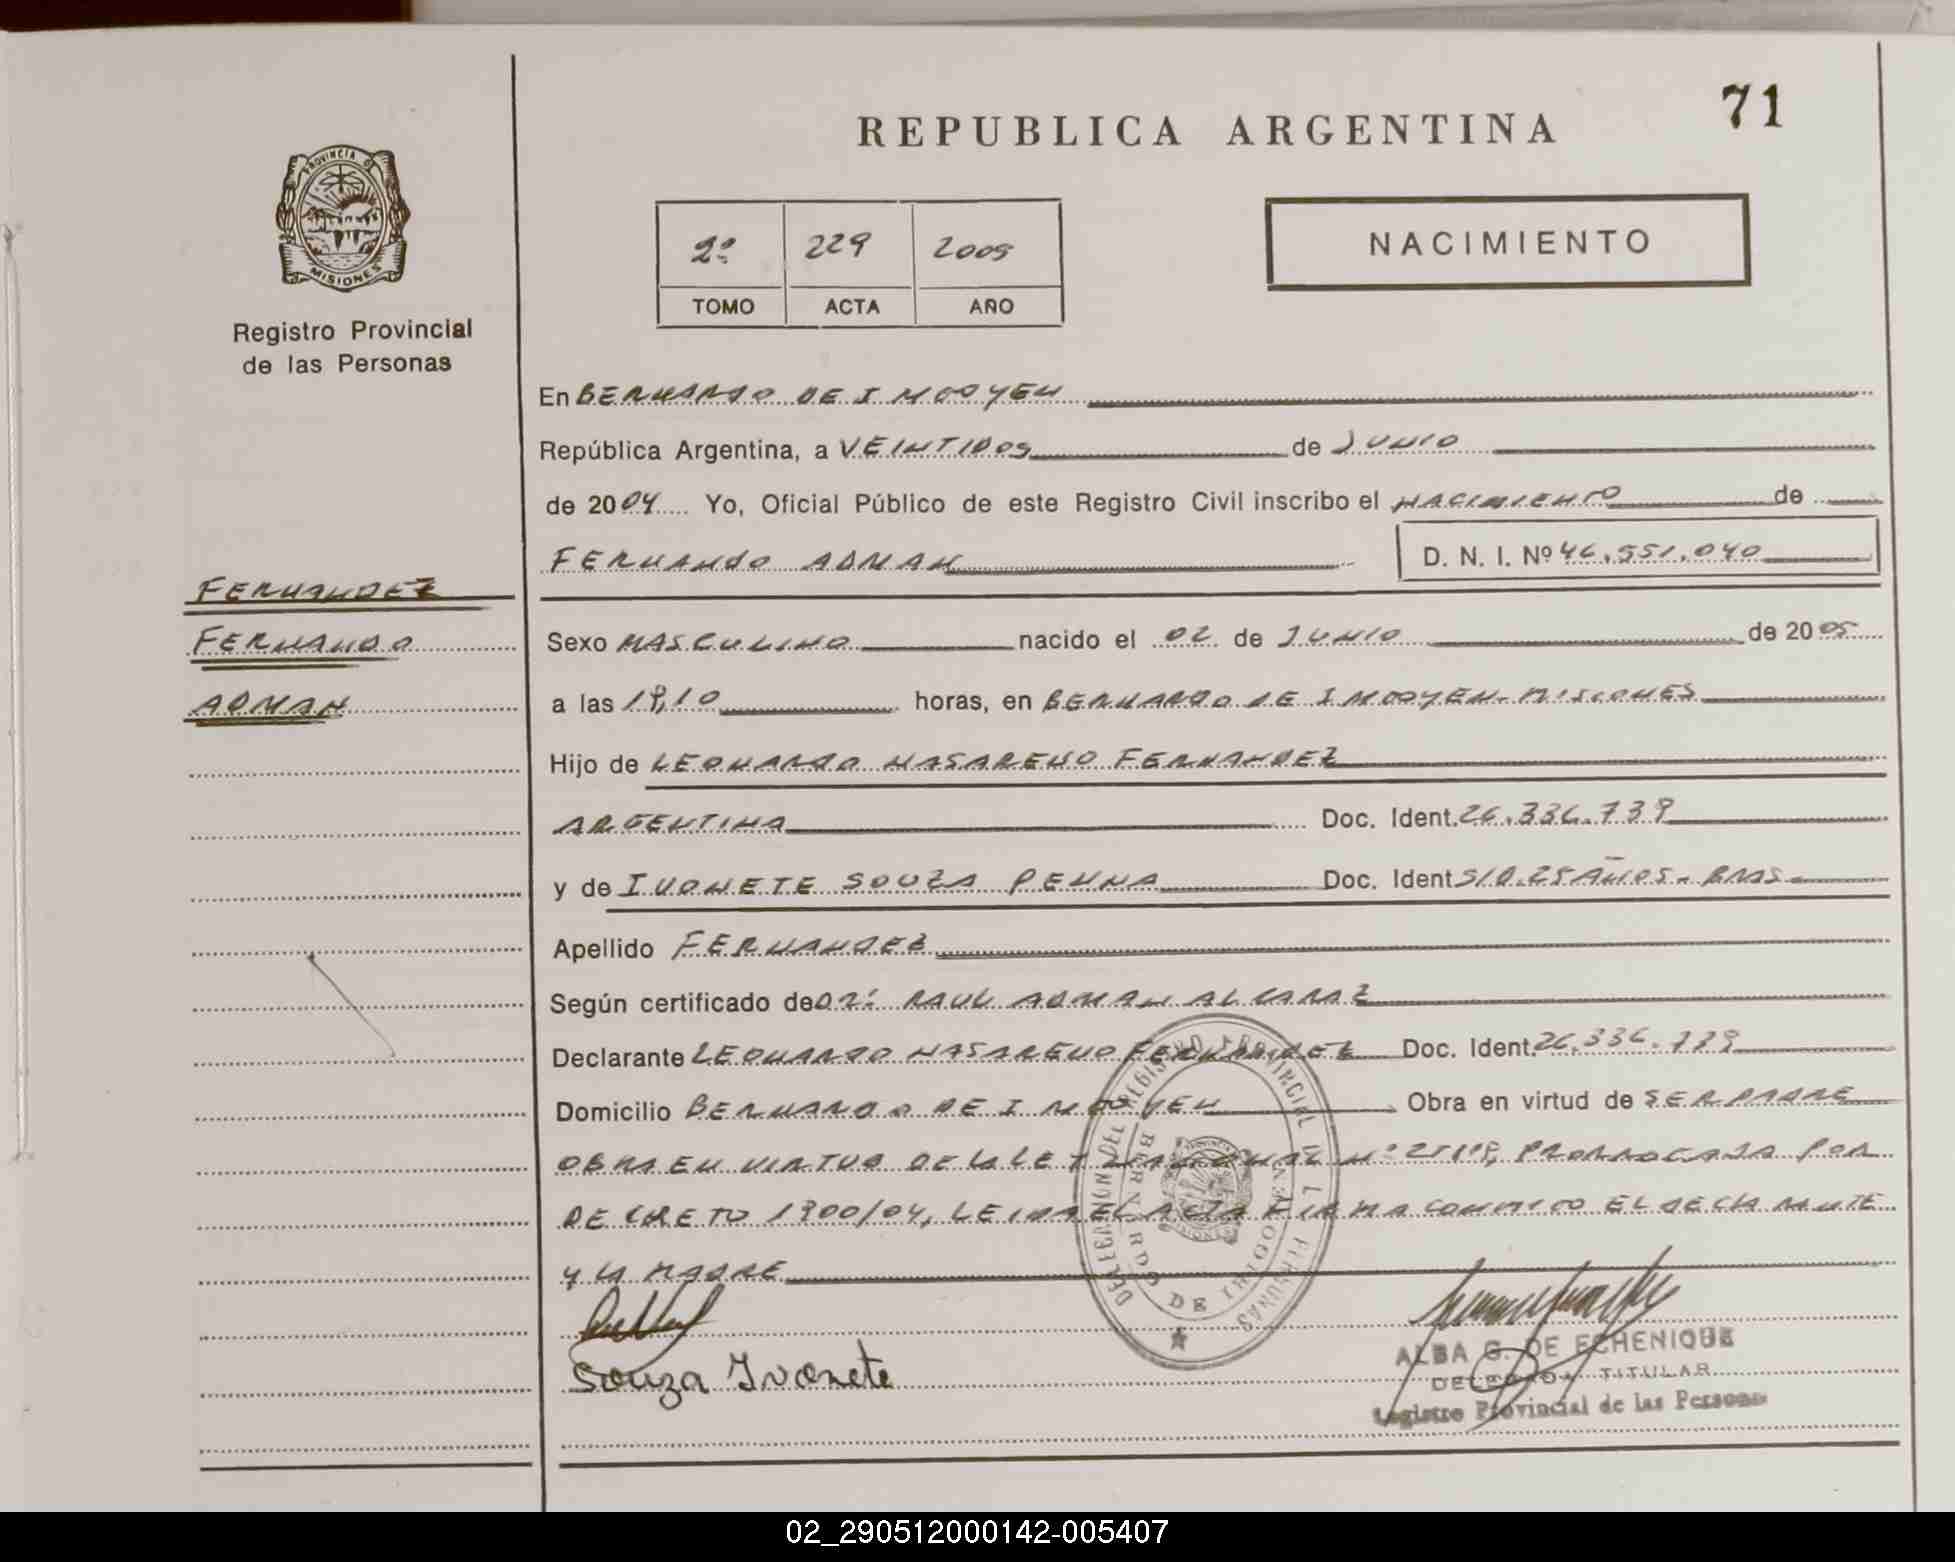 71
REPUBLICA ARGENTINA
PROVINCIA DE
MISIONES
Registro Provincial
de las Personas
2º 229 2005
TOMO ACTA AÑO
NACIMIENTO
En BERNARDO DE IRIGOYEN
República Argentina, a VEINTIDOS de JUNIO
de 2004 Yo, Oficial Público de este Registro Civil inscribo el NACIMIENTO de
FERNANDO ADRIAN D. N. I. Nº 46.551.040
FERNANDEZ
FERNANDO
ADRIAN
Sexo MASCULINO nacido el 02 de JUNIO de 2005
a las 19,10 horas, en BERNARDO DE IRIGOYEN-MISIONES
Hijo de LEONARDO NASARENO FERNANDEZ
ARGENTINA Doc. Ident. 26.336.739
y de IVONETE SOUZA PENNA Doc. Ident S/D.25 AÑOS-BRAS-
Apellido FERNANDEZ
Según certificado de DR: RAUL ADRIAN ALCARAZ
Declarante LEONARDO NASARENO FERNANDEZ Doc. Ident. 26.336.739
Domicilio BERNARDO DE IRIGOYEN Obra en virtud de SER PADRE
OBRA EN VIRTUD DE LA LEY NACIONAL Nº 25818, PRORROGADA POR
DECRETO 1900/04, LEIDA EL ACTA FIRMA CONMIGO EL DECLARANTE
Y LA MADRE
Souza Ivonete
DELEGACION DEL REGISTRO PROVINCIAL DE L PERSONAS
BERNARDO DE IRIGOYEN
ALBA G. DE ECHENIQUE
DELEGADA TITULAR
Registro Provincial de las Personas
02_290512000142-005407